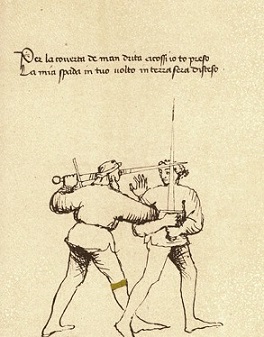 Per la coverta de man drita aco ssi io to preso
La mia spada in tuo volto in terra serà disteso